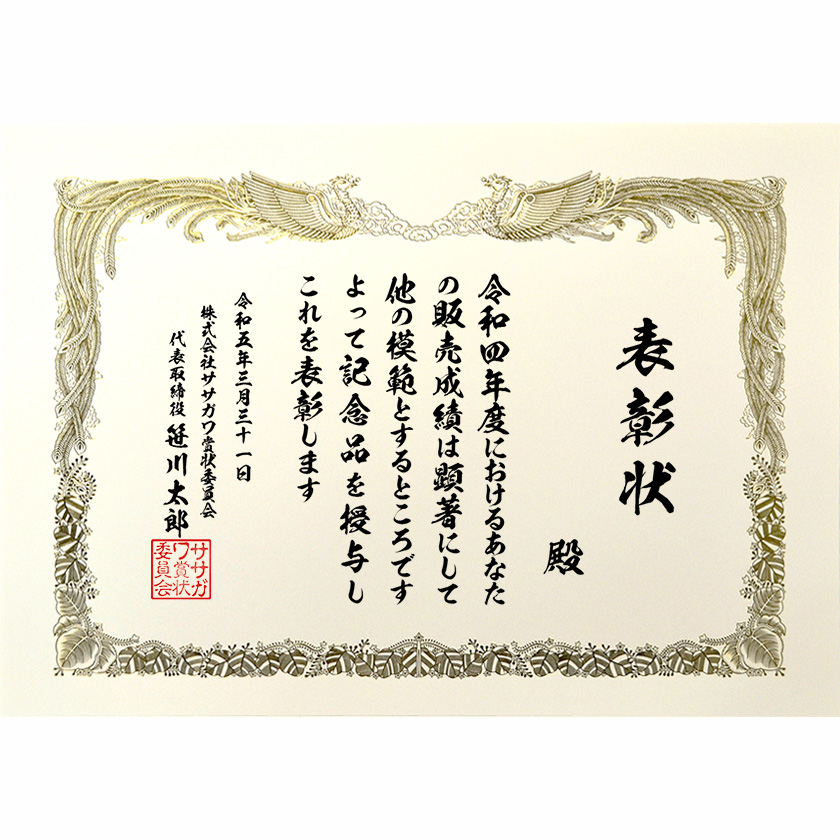 表彰状
殿
令和四年度におけるあなた
の販売成績は顕著にして
他の模範とするところです
よって記念品を授与し
これを表彰します
令和五年三月三十一日
株式会社ササガワ賞状委員会
代表取締役 笹川太郎
ササガ
ワ賞状
委員会